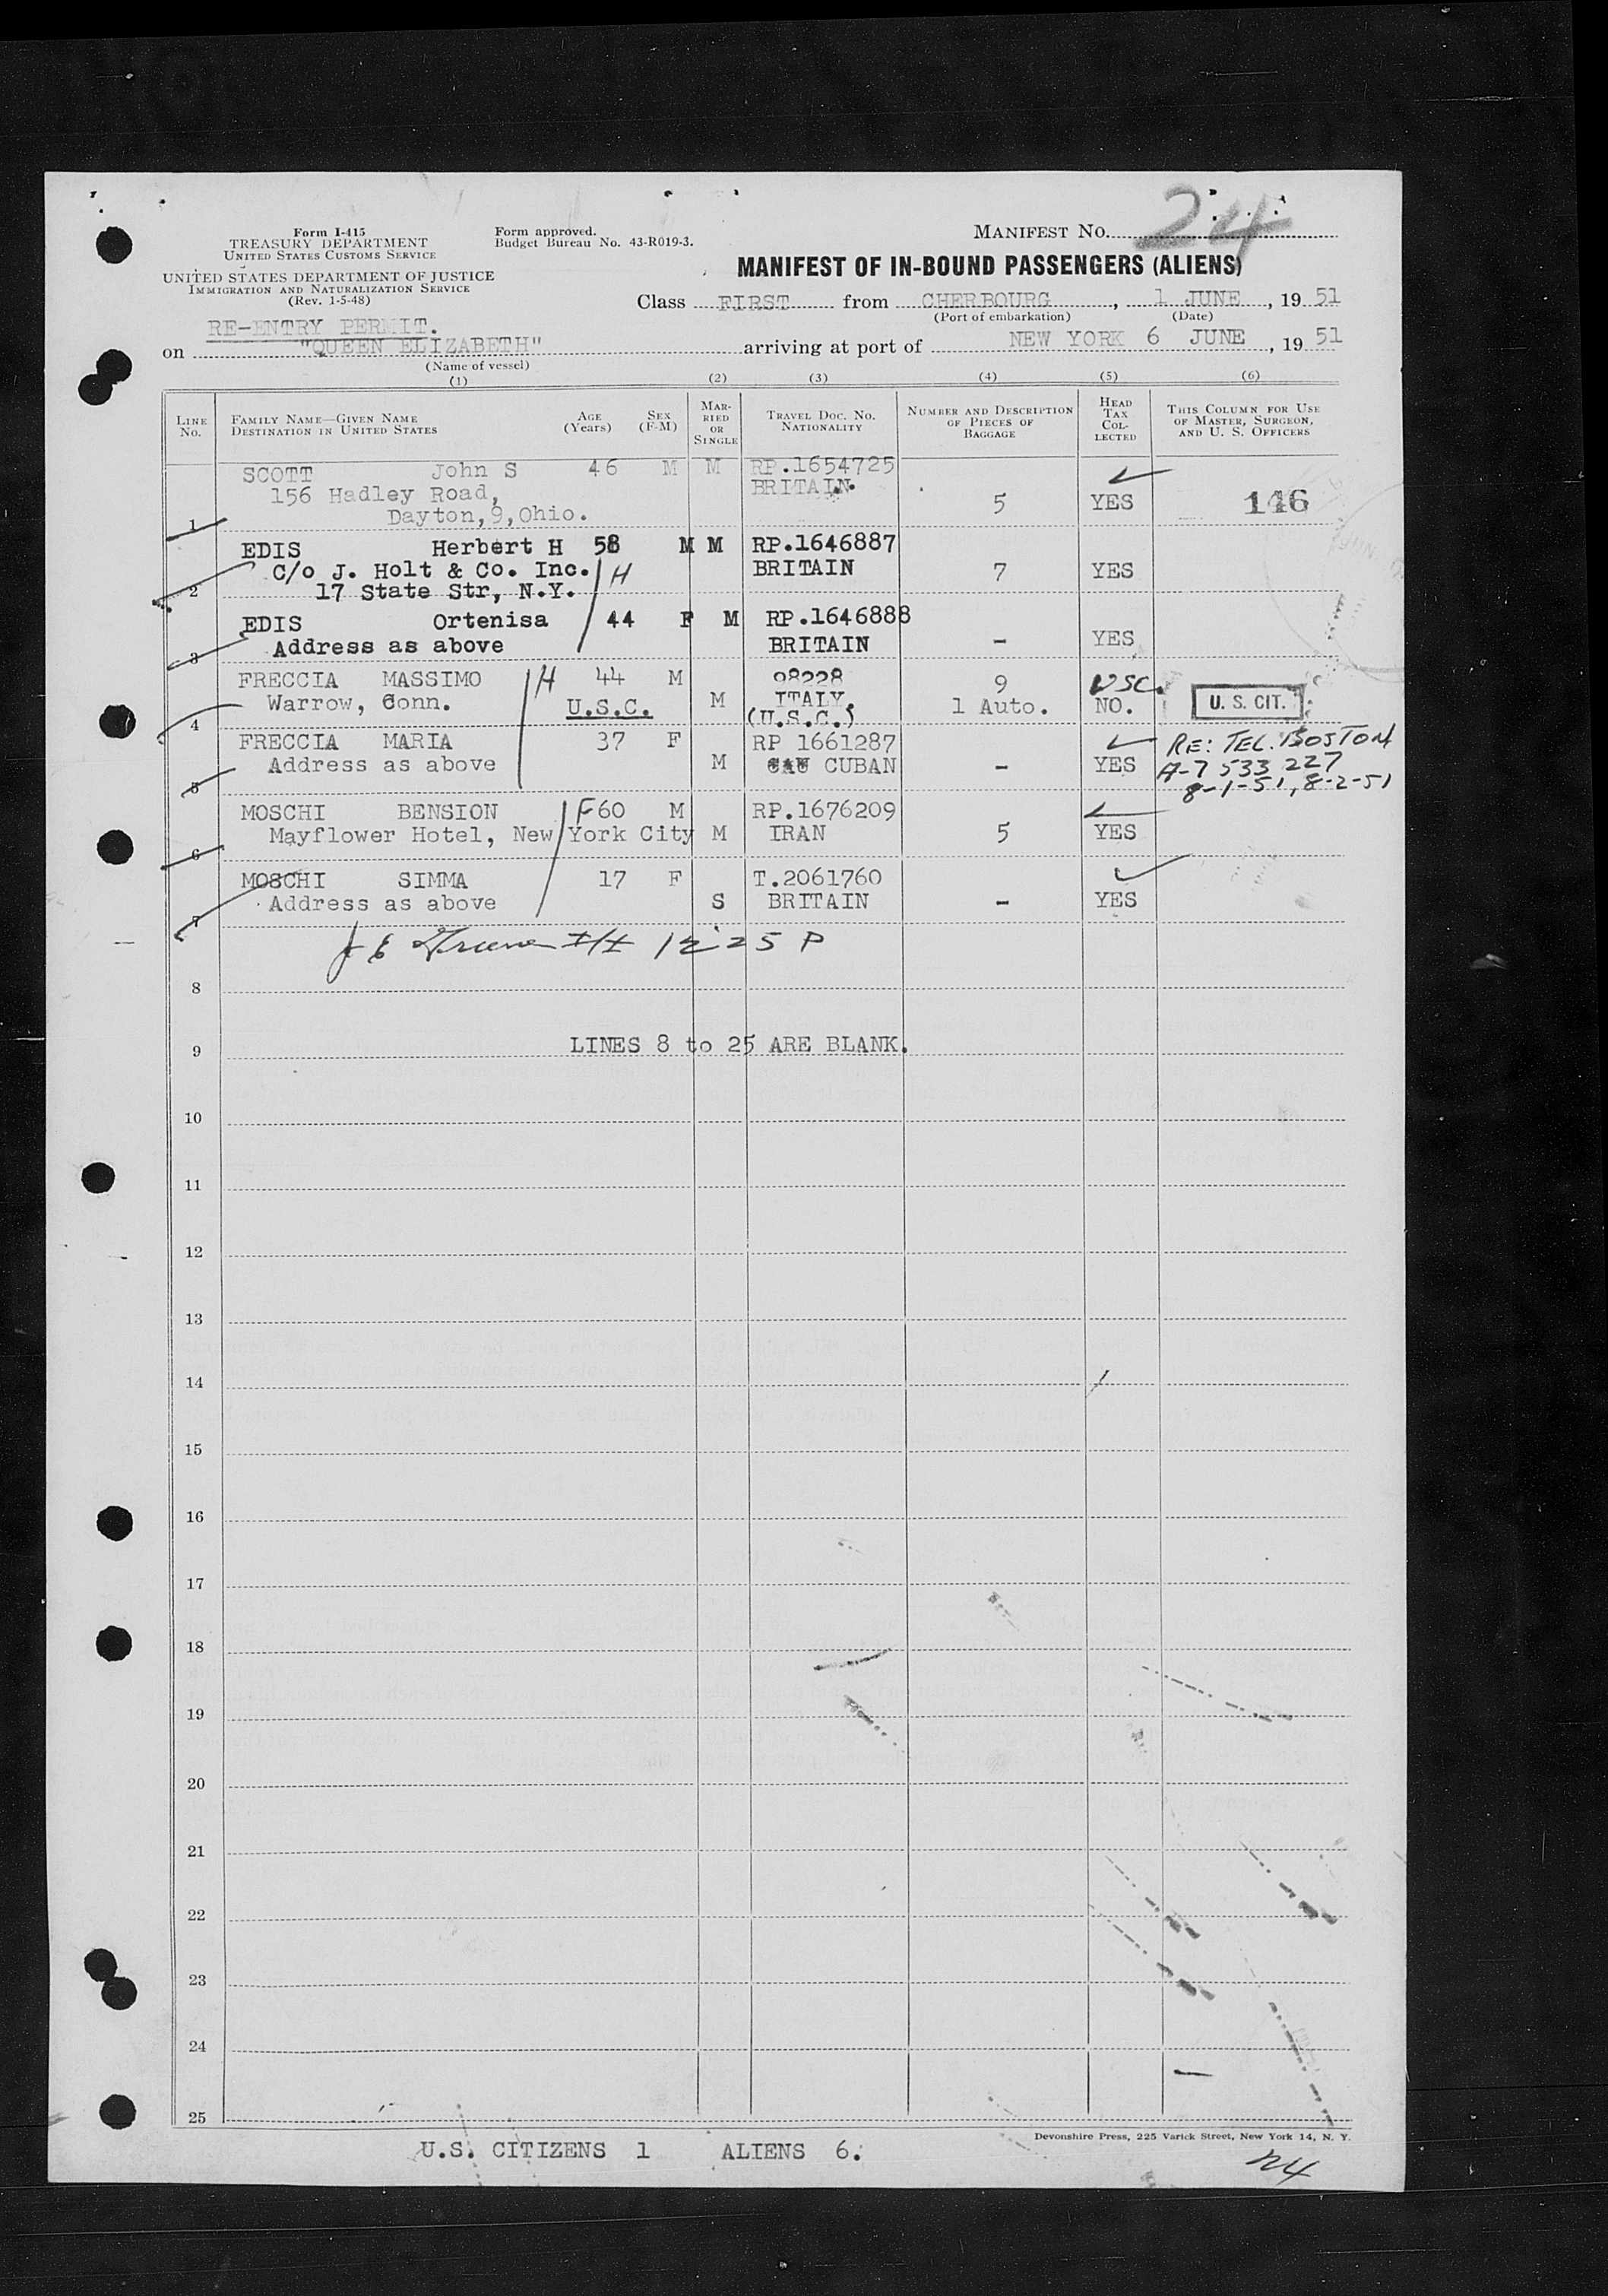 Form I-415
TREASURY DEPARTMENT
UNITED STATES CUSTOMS SERVICE
UNITED STATES DEPARTMENT OF JUSTICE
IMMIGRATION AND NATURALIZATION SERVICE
(Rev. 1-5-48)
Form approved.
Budget Bureau No. 43-R019-3.
MANIFEST NO. 24
MANIFEST OF IN-BOUND PASSENGERS (ALIENS)
Class FIRST from CHERBOURG, 1 JUNE, 19 51
(Port of embarkation) (Date)
RE-ENTRY PERMIT.
on "QUEEN ELIZABETH" arriving at port of NEW YORK 6 JUNE, 19 51
(Name of vessel)
(1) (2) (3) (4) (5) (6)
LINE NO. FAMILY NAME—GIVEN NAME DESTINATION IN UNITED STATES AGE (Years) SEX (F-M) MARRIED OR SINGLE TRAVEL DOC. NO. NATIONALITY NUMBER AND DESCRIPTION OF PIECES OF BAGGAGE HEAD TAX COLLECTED THIS COLUMN FOR USE OF MASTER, SURGEON, AND U. S. OFFICERS
SCOTT John S 46 M M RP.1654725
156 Hadley Road, BRITAIN. 5 YES 146
1 Dayton,9,Ohio.
EDIS Herbert H 58 M M RP.1646887
C/o J. Holt & Co. Inc. H BRITAIN 7 YES
2 17 State Str, N.Y.
EDIS Ortenisa 44 F M RP.1646888
3 Address as above BRITAIN - YES
FRECCIA MASSIMO H 44 M 98228 9 USC.
4 Warrow, Conn. U.S.C. M ITALY. 1 Auto. NO. U. S. CIT.
(U.S.C.)
FRECCIA MARIA 37 F RP 1661287 RE: TEL. BOSTON
5 Address as above M CUBAN - YES A-7 533 227
8-1-51, 8-2-51
MOSCHI BENSION F 60 M RP.1676209
6 Mayflower Hotel, New York City M IRAN 5 YES
MOSCHI SIMMA 17 F T.2061760
7 Address as above S BRITAIN - YES
12 25 P
8
9 LINES 8 to 25 ARE BLANK.
10
11
12
13
14
15
16
17
18
19
20
21
22
23
24
25
Devonshire Press, 225 Varick Street, New York 14, N. Y.
U.S. CITIZENS 1 ALIENS 6.
24